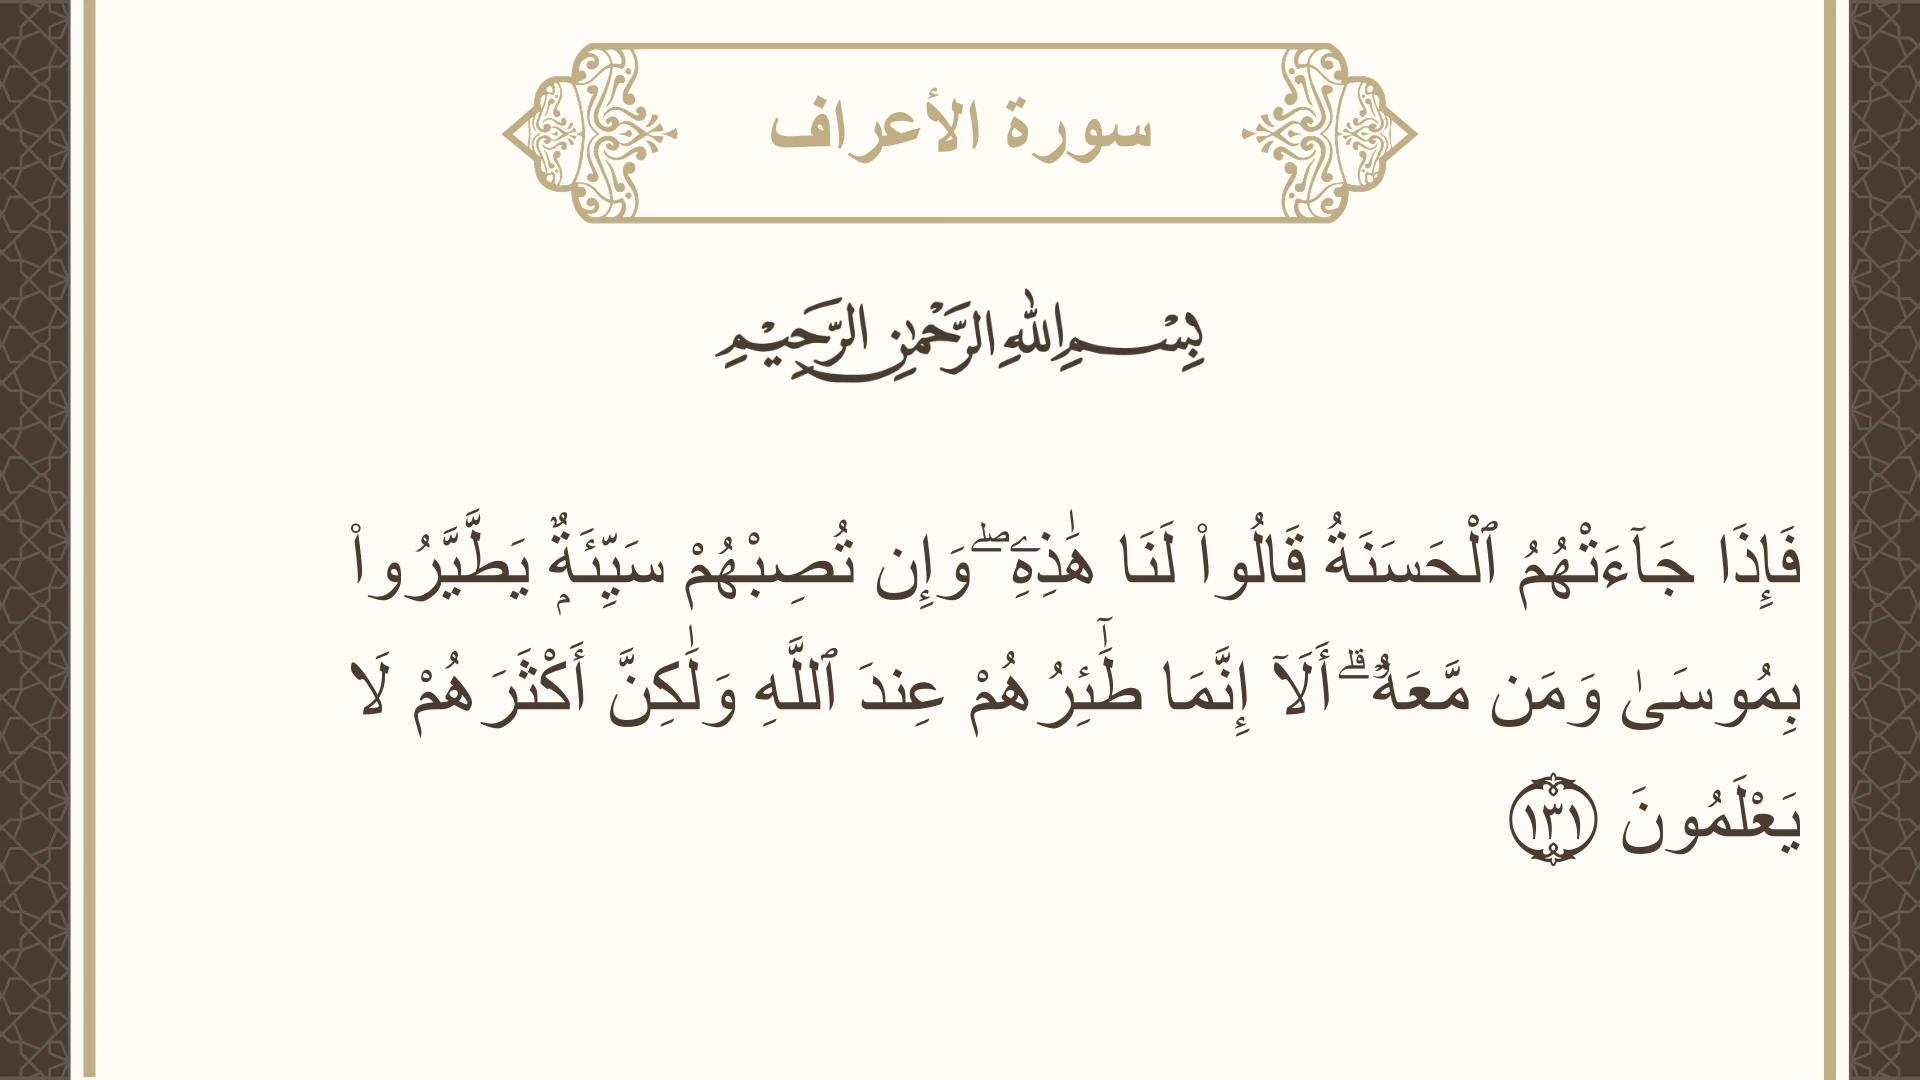 سورة الأعراف
بِسْمِ اللهِ الرَّحْمٰنِ الرَّحِيْمِ
فَإِذَا جَآءَتْهُمُ ٱلْحَسَنَةُ قَالُوا۟ لَنَا هَٰذِهِۦ ۖ وَإِن تُصِبْهُمْ سَيِّئَةٌۭ يَطَّيَّرُوا۟
بِمُوسَىٰ وَمَن مَّعَهُۥٓ ۗ أَلَآ إِنَّمَا طَٰٓئِرُهُمْ عِندَ ٱللَّهِ وَلَٰكِنَّ أَكْثَرَهُمْ لَا
يَعْلَمُونَ ١٣١